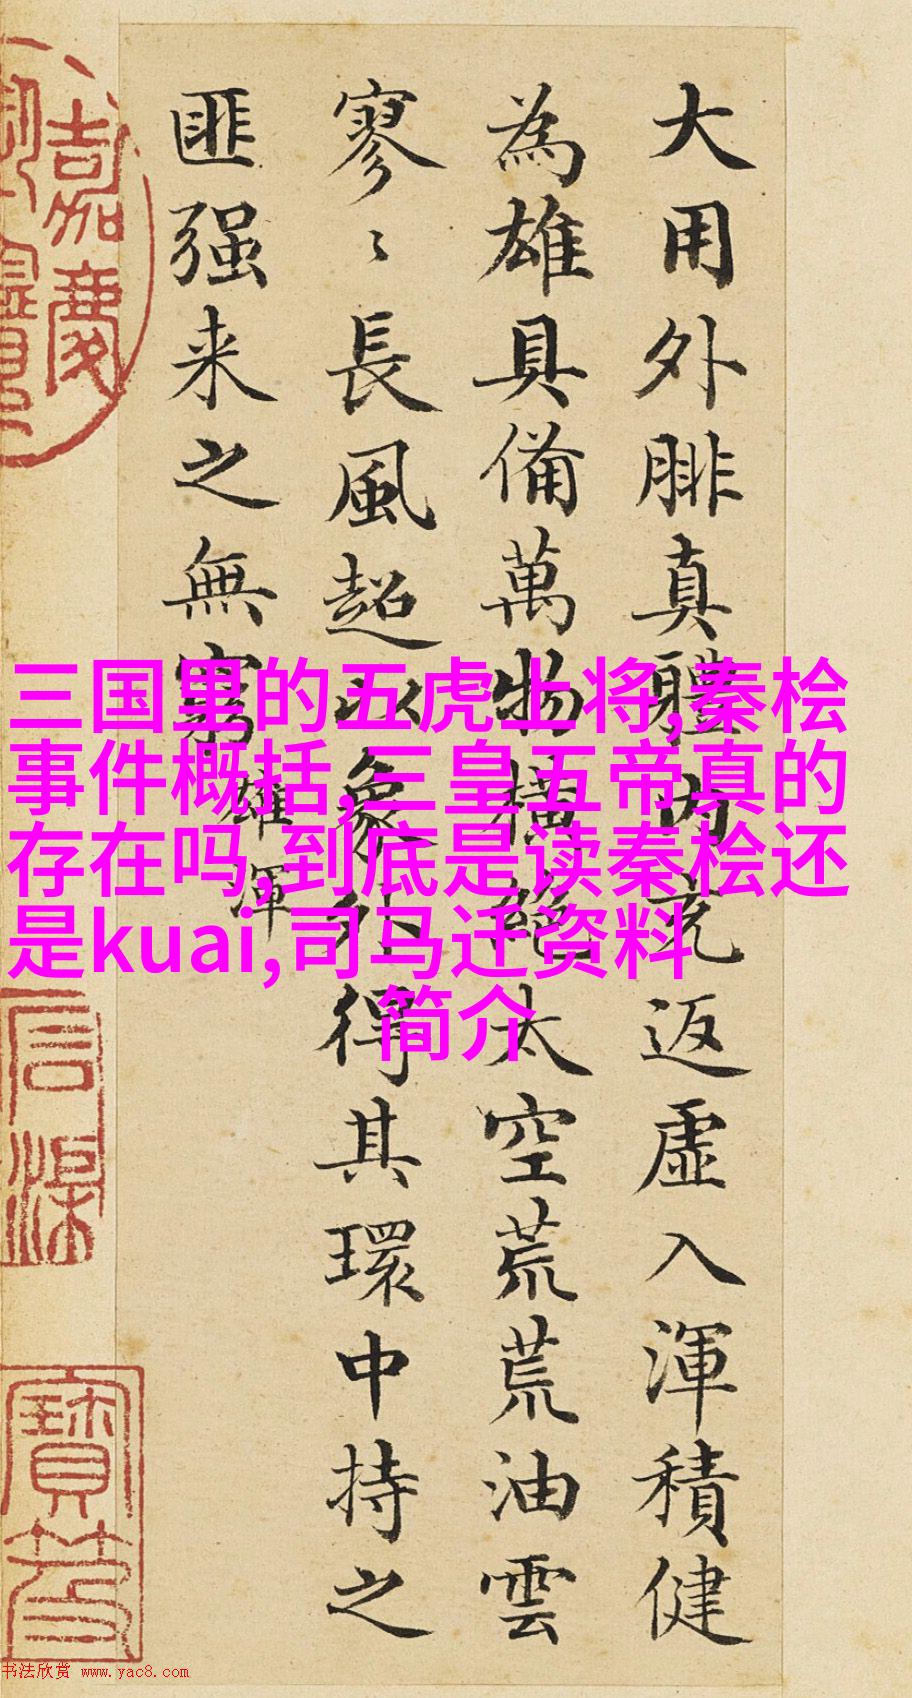 大用外腓真體内充返虛入渾積健
為雄具備萬物橫絕太空荒荒油雲
寥〻長風超以象外得其環中持之
匪强来之無窮
雄渾
三国里的五虎上将,秦桧
事件概括,三皇五帝真的
存在吗,到底是读秦桧还
是kuai,司马迁资料
简介
嘉慶
寶笈
书法欣赏 www.yac8.com